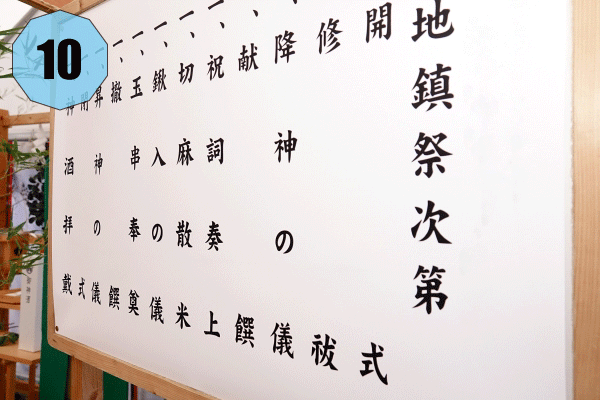 地鎮祭次第
開式
修祓
一、降神の儀
一、献饌
一、祝詞奏上
一、切麻散米
一、鍬入の儀
一、玉串奉奠
一、撤饌
昇神の儀
閉式
神酒拝戴
10